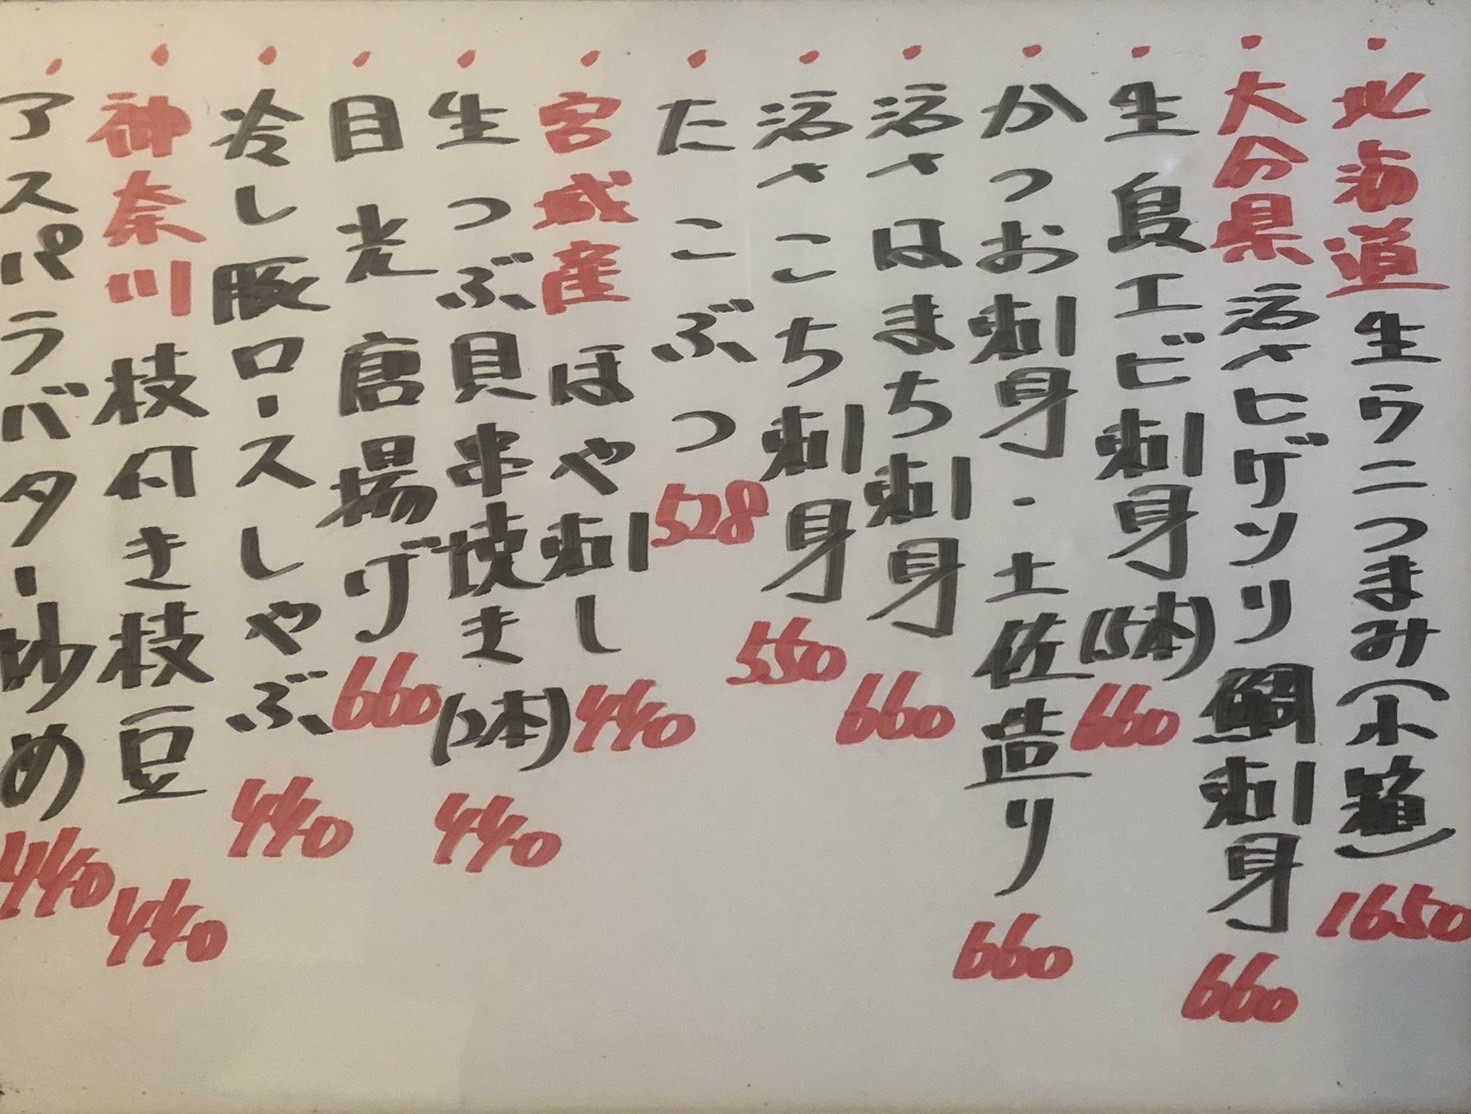 ・北海道 生ウニつまみ(小箱) 1650
・大分県 活〆ヒゲソリ鯛刺身 660
・生 島エビ刺身(5本) 660
・かつお刺身・土佐造り 660
・活〆はまち刺身 660
・活〆こち刺身 550
・たこぶつ 528
・宮城産 ほや刺し 440
・生つぶ貝串焼き(2本) 440
・目光唐揚げ 660
・冷し豚ロースしゃぶ 440
・神奈川 枝付き枝豆 440
・アスパラバター炒め 440